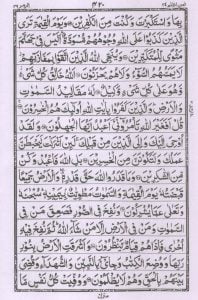 فمن اظلم ٢٤ الزمر ٣٩
بِهَا وَاسْتَكْبَرْتَ وَكُنْتَ مِنَ الْكٰفِرِيْنَ وَيَوْمَ الْقِيٰمَةِ تَرَى
الَّذِيْنَ كَذَبُوْا عَلَى اللّٰهِ وُجُوْهُهُمْ مُّسْوَدَّةٌ اَلَيْسَ فِيْ جَهَنَّمَ
مَثْوًى لِّلْمُتَكَبِّرِيْنَ وَيُنَجِّى اللّٰهُ الَّذِيْنَ اتَّقَوْا بِمَفَازَتِهِمْ
لَا يَمَسُّهُمُ السُّوْٓءُ وَلَا هُمْ يَحْزَنُوْنَ اَللّٰهُ خَالِقُ كُلِّ شَيْءٍ
وَّهُوَ عَلٰى كُلِّ شَيْءٍ وَّكِيْلٌ لَهٗ مَقَالِيْدُ السَّمٰوٰتِ
وَالْاَرْضِ وَالَّذِيْنَ كَفَرُوْا بِاٰيٰتِ اللّٰهِ اُولٰٓئِكَ هُمُ الْخٰسِرُوْنَ
قُلْ اَفَغَيْرَ اللّٰهِ تَاْمُرُوْٓنِّيْٓ اَعْبُدُ اَيُّهَا الْجٰهِلُوْنَ وَلَقَدْ
اُوْحِيَ اِلَيْكَ وَاِلَى الَّذِيْنَ مِنْ قَبْلِكَ لَئِنْ اَشْرَكْتَ لَيَحْبَطَنَّ
عَمَلُكَ وَلَتَكُوْنَنَّ مِنَ الْخٰسِرِيْنَ بَلِ اللّٰهَ فَاعْبُدْ وَكُنْ
مِّنَ الشّٰكِرِيْنَ وَمَا قَدَرُوا اللّٰهَ حَقَّ قَدْرِهٖ وَالْاَرْضُ جَمِيْعًا
قَبْضَتُهٗ يَوْمَ الْقِيٰمَةِ وَالسَّمٰوٰتُ مَطْوِيّٰتٌ بِيَمِيْنِهٖ سُبْحٰنَهٗ
وَتَعٰلٰى عَمَّا يُشْرِكُوْنَ وَنُفِخَ فِي الصُّوْرِ فَصَعِقَ مَنْ فِي
السَّمٰوٰتِ وَمَنْ فِي الْاَرْضِ اِلَّا مَنْ شَآءَ اللّٰهُ ثُمَّ نُفِخَ فِيْهِ
اُخْرٰى فَاِذَا هُمْ قِيَامٌ يَّنْظُرُوْنَ وَاَشْرَقَتِ الْاَرْضُ بِنُوْرِ
رَبِّهَا وَوُضِعَ الْكِتٰبُ وَجِايْٓءَ بِالنَّبِيّٖنَ وَالشُّهَدَآءِ وَقُضِيَ
بَيْنَهُمْ بِالْحَقِّ وَهُمْ لَا يُظْلَمُوْنَ وَوُفِّيَتْ كُلُّ نَفْسٍ مَّا
منزل